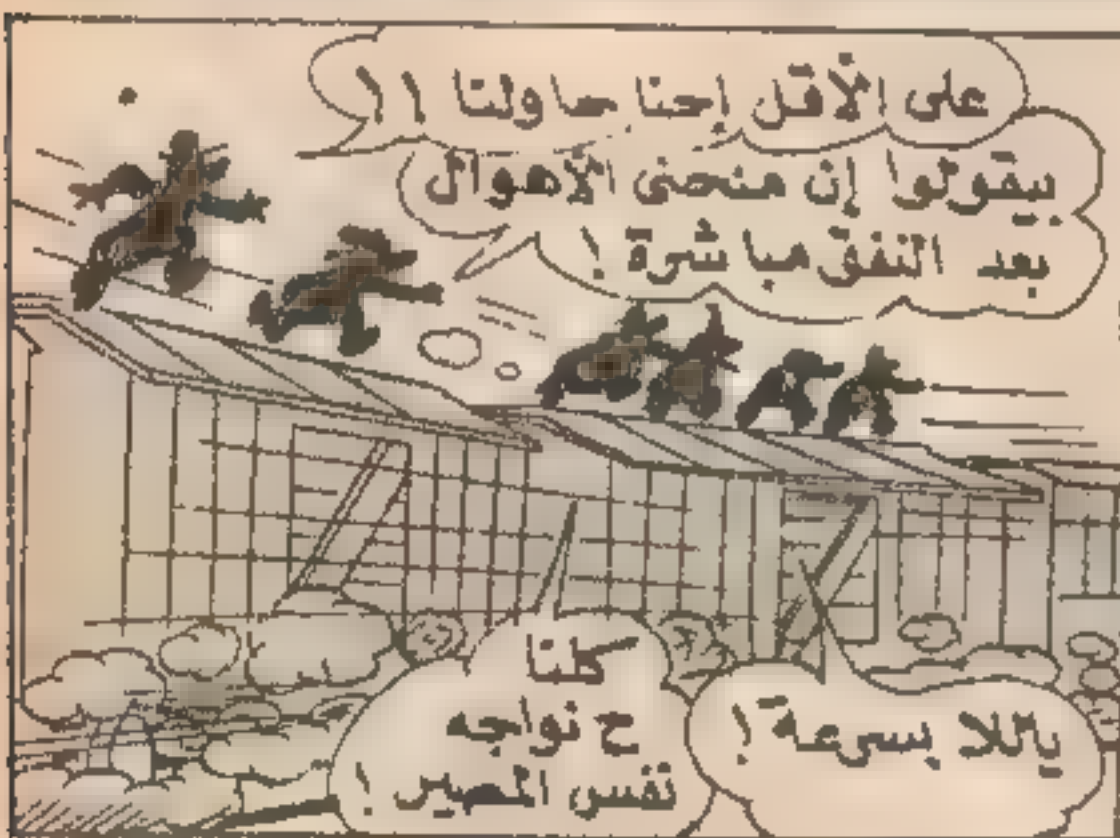 على الأقل إحنا حاولنا !!
بيقولوا إن منحنى الأهوال
بعد النفق مباشرة !
ياللا بسرعة !
كلنا
ح نواجه
نفس المصير !